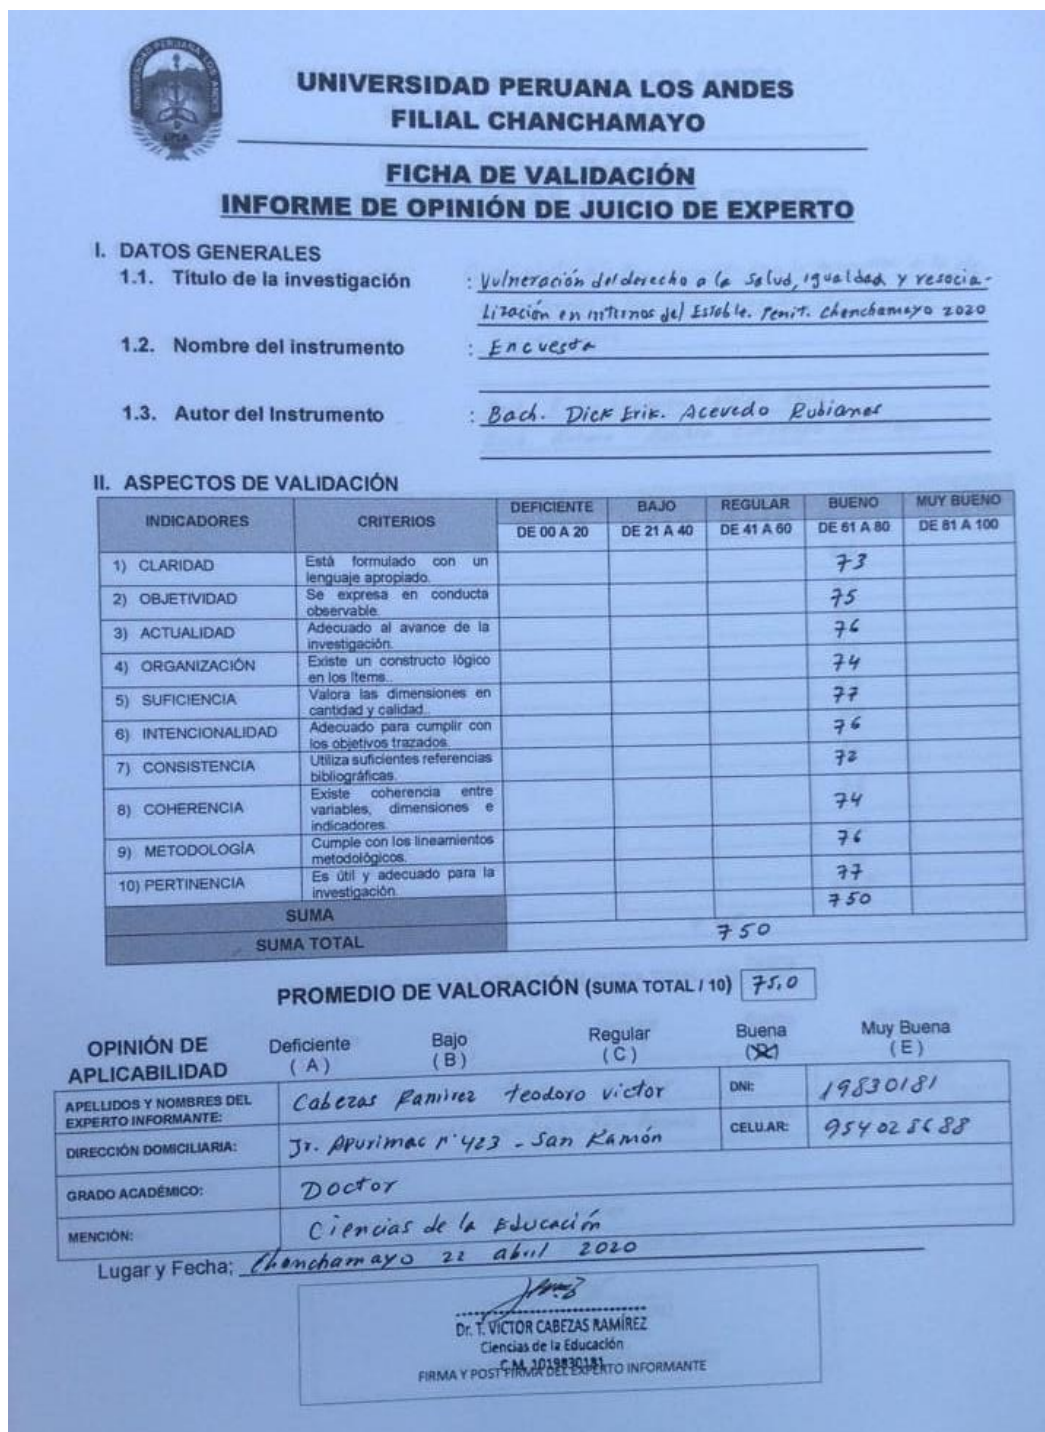 UNIVERSIDAD PERUANA LOS ANDES
FILIAL CHANCHAMAYO
FICHA DE VALIDACIÓN
INFORME DE OPINIÓN DE JUICIO DE EXPERTO
I. DATOS GENERALES
1.1. Título de la investigación : Vulneración del derecho a la Salud, igualdad y resocia-
lización en internos del Estable. Penit. Chanchamayo 2020
1.2. Nombre del instrumento : Encuesta
1.3. Autor del Instrumento : Bach. Dick Erik. Acevedo Rubianes
II. ASPECTOS DE VALIDACIÓN
INDICADORES CRITERIOS DEFICIENTE BAJO REGULAR BUENO MUY BUENO
DE 00 A 20 DE 21 A 40 DE 41 A 60 DE 61 A 80 DE 81 A 100
1) CLARIDAD Está formulado con un 73
lenguaje apropiado.
2) OBJETIVIDAD Se expresa en conducta 75
observable.
3) ACTUALIDAD Adecuado al avance de la 76
investigación.
4) ORGANIZACIÓN Existe un constructo lógico 74
en los Items..
5) SUFICIENCIA Valora las dimensiones en 77
cantidad y calidad..
6) INTENCIONALIDAD Adecuado para cumplir con 76
los objetivos trazados.
7) CONSISTENCIA Utiliza suficientes referencias 72
bibliográficas.
8) COHERENCIA Existe coherencia entre 74
variables, dimensiones e
indicadores.
9) METODOLOGÍA Cumple con los lineamientos 76
metodológicos.
10) PERTINENCIA Es útil y adecuado para la 77
investigación.
SUMA 750
SUMA TOTAL 750
PROMEDIO DE VALORACIÓN (SUMA TOTAL / 10) 75,0
OPINIÓN DE Deficiente Bajo Regular Buena Muy Buena
APLICABILIDAD ( A ) ( B ) ( C ) ( E )
APELLIDOS Y NOMBRES DEL Cabezas Ramirez teodoro victor DNI: 19830181
EXPERTO INFORMANTE:
DIRECCIÓN DOMICILIARIA: Jr. Apurimac N° 423 - San Ramón CELULAR: 954028688
GRADO ACADÉMICO: Doctor
MENCIÓN: Ciencias de la Educación
Lugar y Fecha; Chanchamayo 22 abril 2020
Dr. T. VICTOR CABEZAS RAMÍREZ
Ciencias de la Educación
C.M. 1019830181
FIRMA Y POST FIRMA DEL EXPERTO INFORMANTE